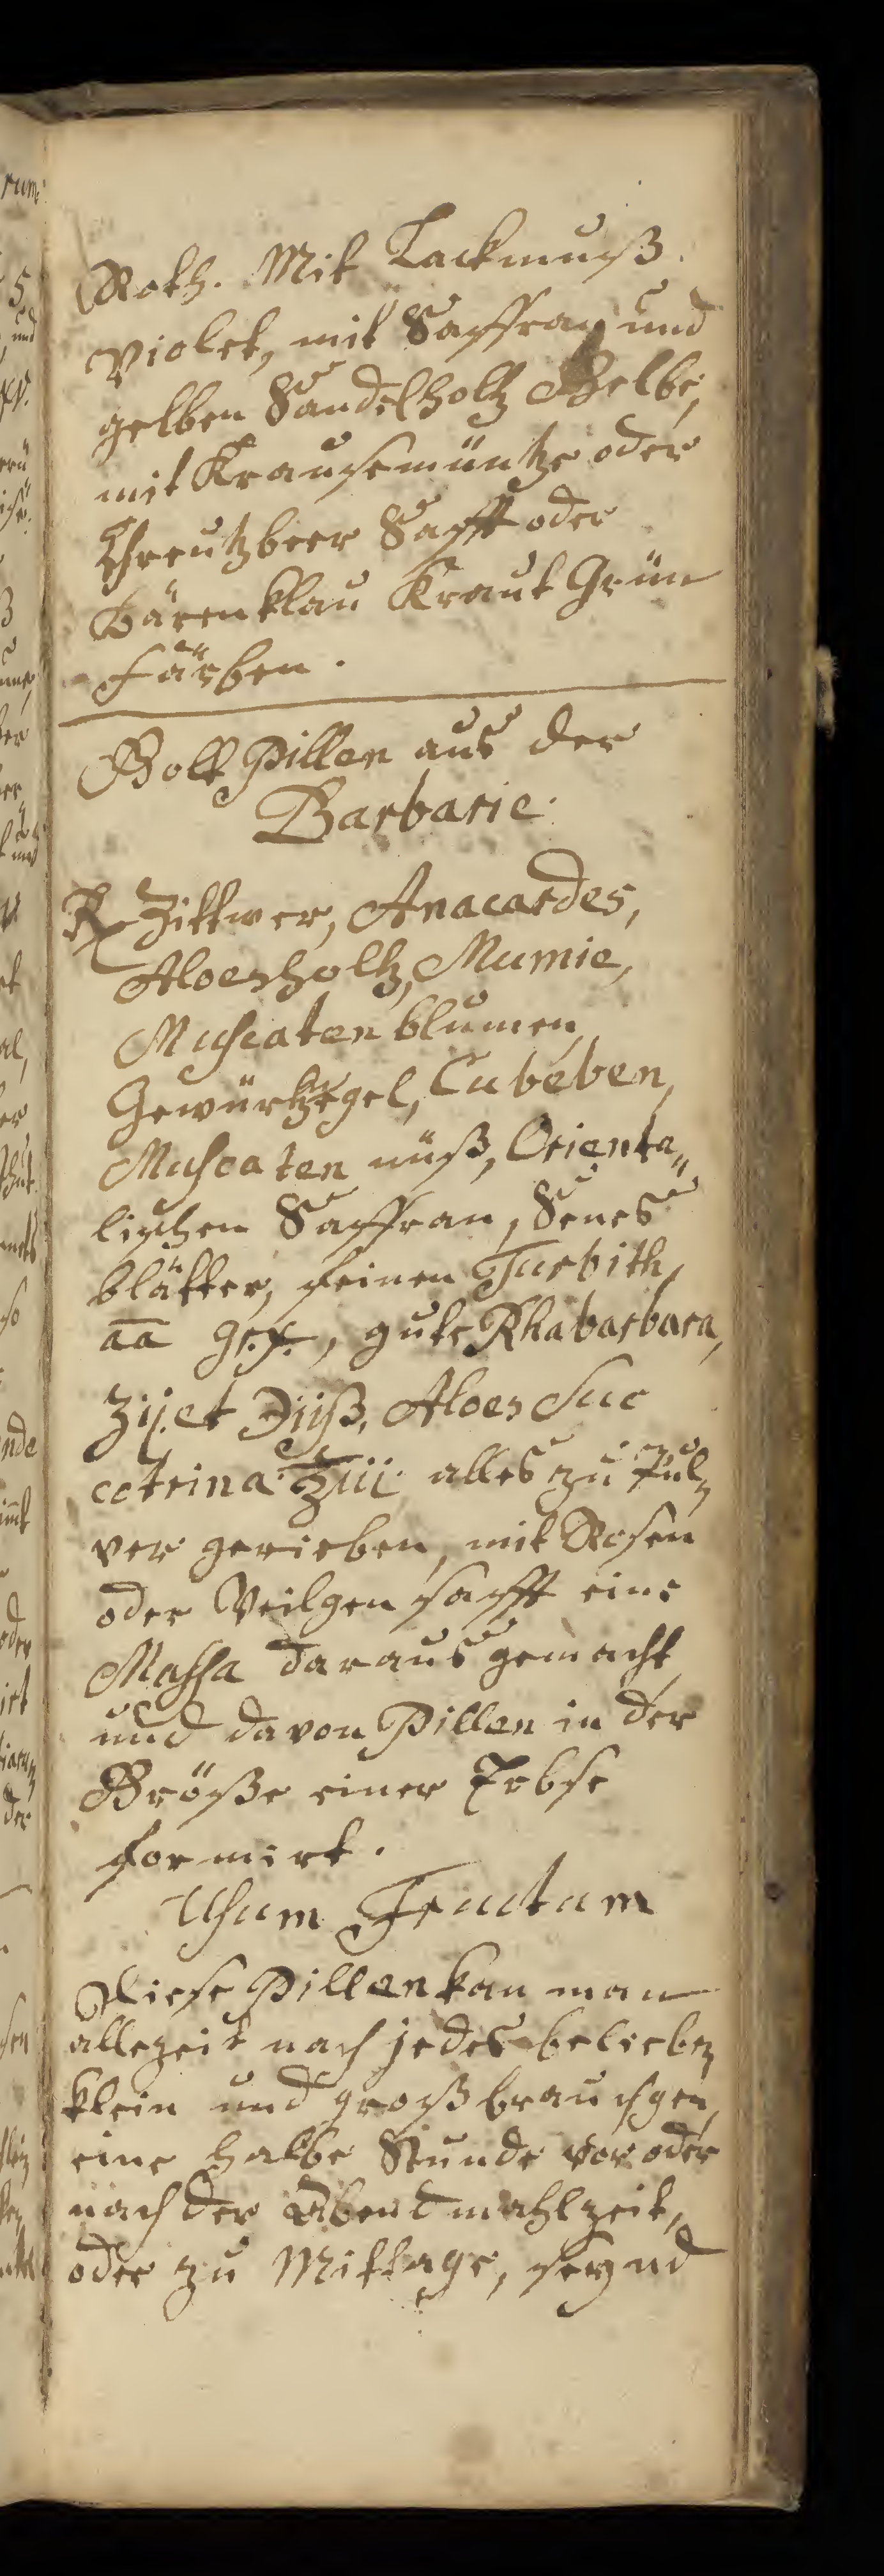 Roth. Mit Lackmuß
Violet, mit Saffran und
gelben Sandelholtz Gelbe,
mit Krausemüntze oder
Chreutzbeer Safft oder
Bärenklau Kraut Grün
färben.
Golt Pillen aus der
Barbarie.
℞ Zittwer, Anacardes,
Aloesholtz, Mumie,
Muscaten blumen,
Gewürtznegel, Cubeben,
Muscaten nüß, Orienta„
lischen Saffran, Senes
blätter, feinen Turbith,
aa gr.x., gute Rhabarbara,
ʒij. et ℈iiß, Aloes Suc
cotrina ℥iii. alles zu Pul„
ver gerieben, mit Rosen
oder Veilgen safft eine
Massa daraus gemacht
und davon Pillen in der
Größe einer Erbse
formirt.
Usum Fructum
Diese Pillen kan man
allezeit nach jedes belieben
klein und groß brauchgen,
eine halbe Stunde vor oder
nach der Abendmahlzeit,
oder zu Mittage, seynd